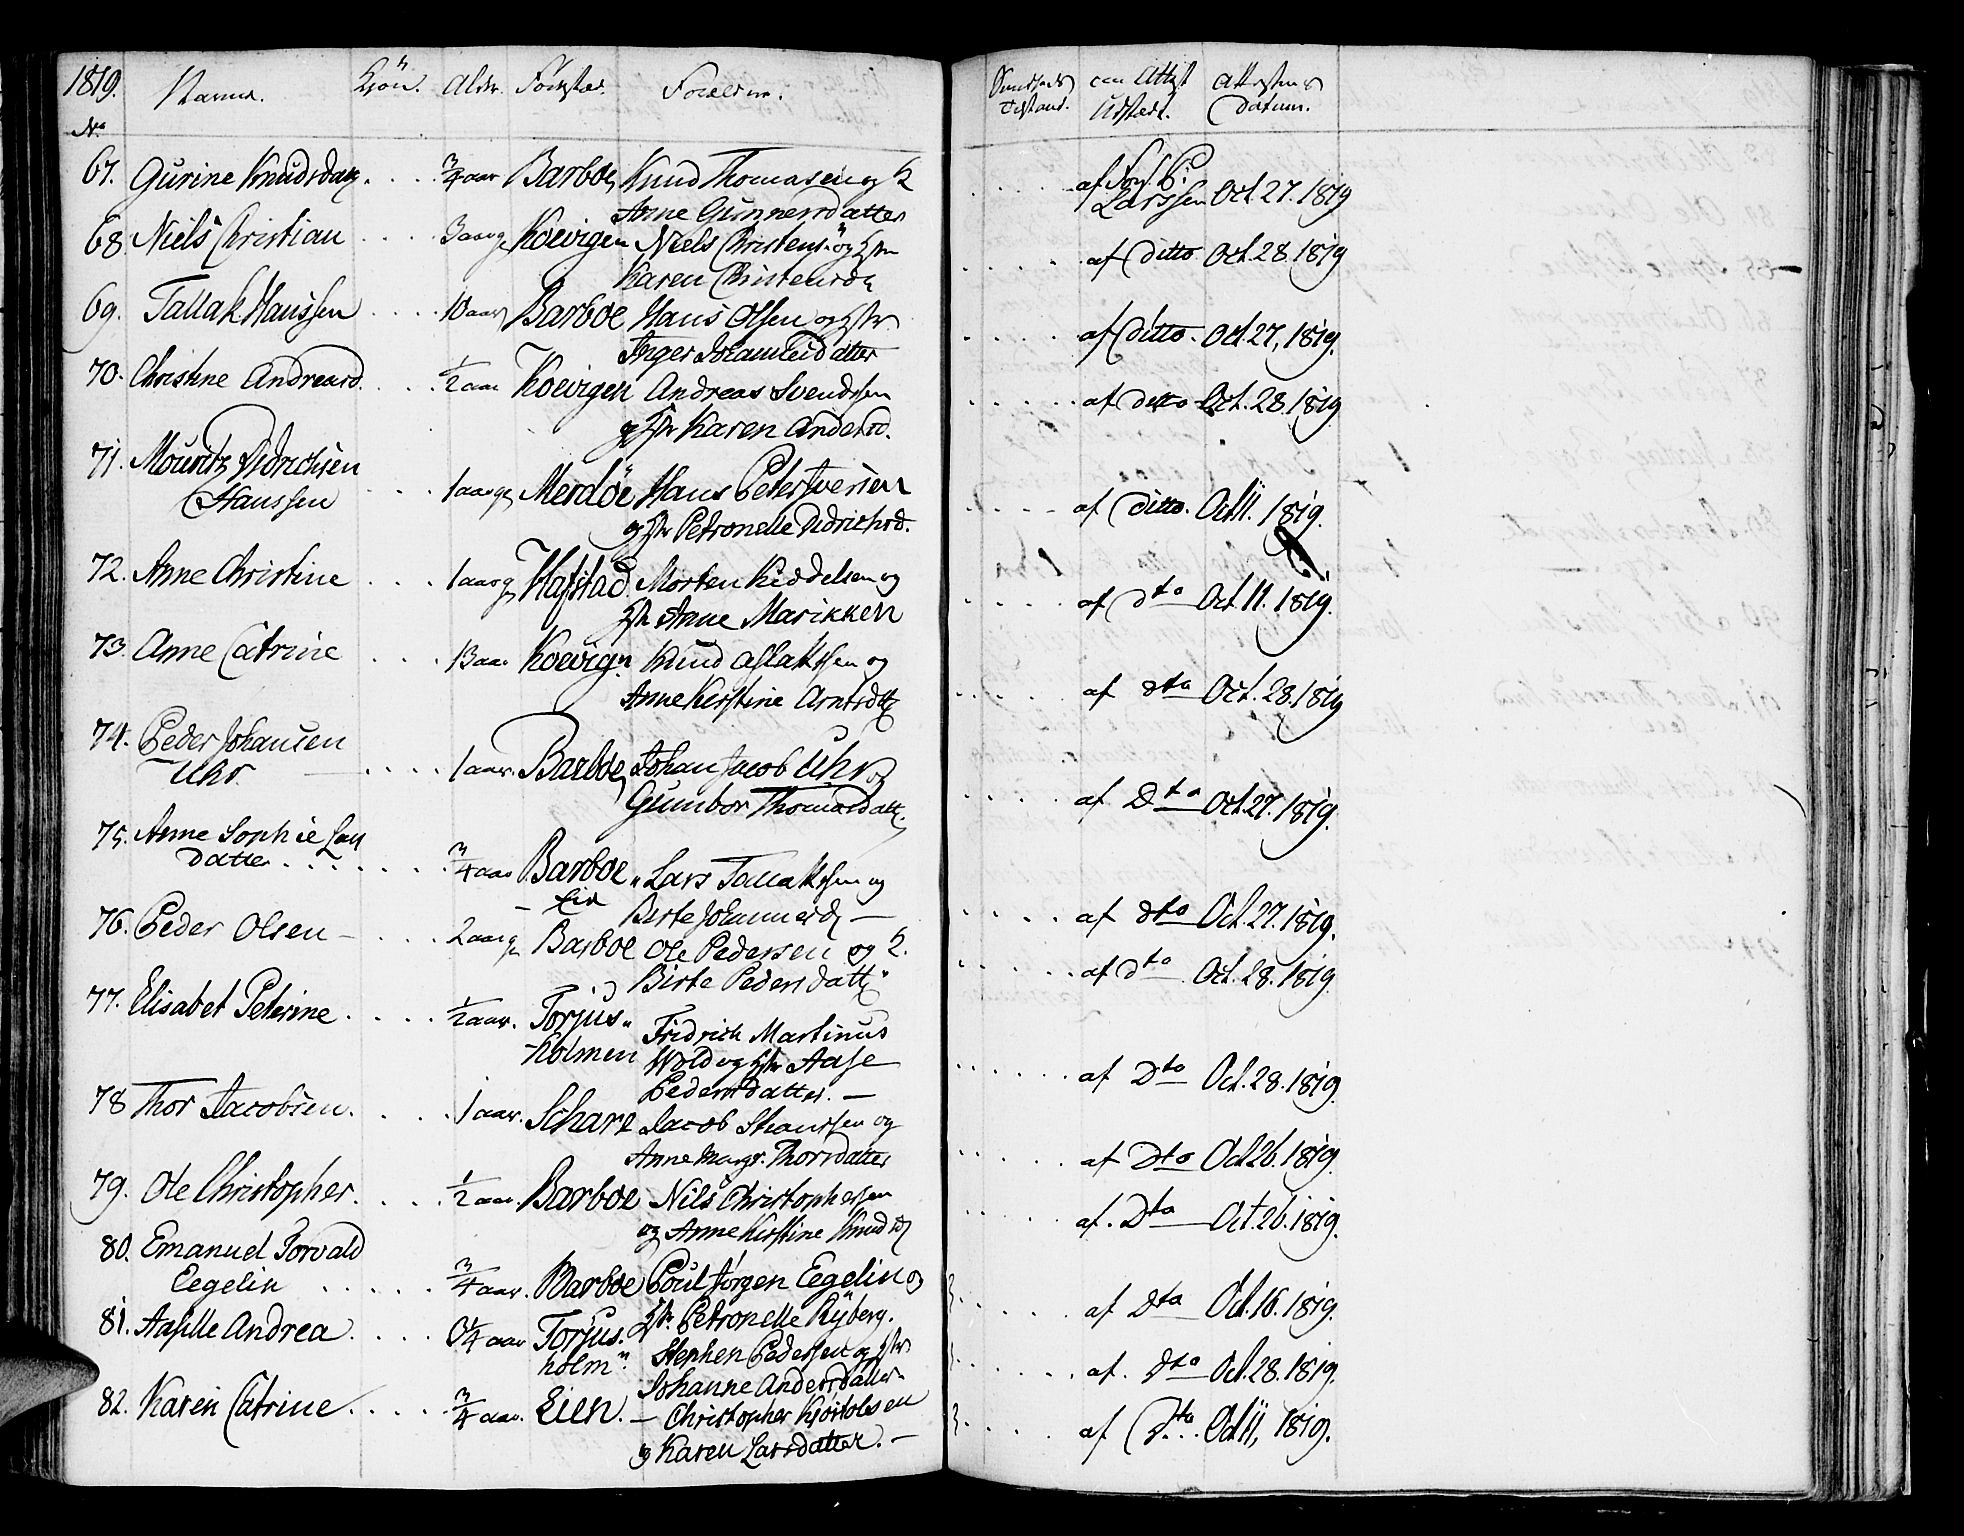 1819.
No Navne. Kjön. Alder. Födestæd. Forældrene. Sundheds Tilstand. om Attest Udstædt. Attestens Datum.
67. Gurine Knudsdatr . . . . 3/4 aar Barboe Knud Thomasen og K . . . . . af Forl. P:
Anne Gunnersdatter Larssen Oct. 27. 1819
68 Niels Christian . . . . 3 aarg Koevigen Niels Christens. og Hstr . . . . . af Ditto Oct. 28. 1819
Karen Christensd
69. Tallak Hanssen . . . . 10 aar Barboe Hans Olsen og Hstr . . . . . af Ditto. Oct. 27, 1819.
Inger Johannesdatter
70. Christine Andreasd. . . . 1/2 aar Koevigen Andreas Svendssen . . . . . af Ditto Oct. 28. 1819
og Hstr Karen Andersd.
71. Mouritz Didrichsen
Hanssen . . . 1 aarg Merdöe Hans Peter Iversen . . . . af Ditto. Oct 11. 1819.
og Hstr Petronelle Didrichsd.
72. Anne Christine . . . . 1 aarg Hafstad Morten Keddelsen og . . . . af Dto Oct. 11. 1819.
Hstr Anne Marikken
73. Anne Catrine . . . . 13 aar Koevign Knud Aslaksen og . . . . . af Dto Oct. 28. 1819
Anne Kirstine Arntsd
74. Peder Johansen
Uhr . . . . 1 aar. Barboe Johan Jacob Uhr og . . . . . af Dto Oct. 27. 1819.
Gunbor Thomasdatt.
75. Anne Sophie Lars
datter . . . . . . . 3/4 aar Barboe Lars Tallaksen og
Birte Johannesd — . . . . af Dto Oct. 27. 1819.
76. Peder Olsen — . . . 2 aarg Barboe Ole Pedersen og K. . . . . . af Dto Oct. 28. 1819
Birte Pedersdatt
77. Elisabet Peterine . . . . 1/2 aar. Torjus-
holmen Fridrich Martinus
Wold og Hstr Aase . . . . . . af Dto Oct. 28. 1819.
Pedersdatter. —
78 Thor Jacobsen. . . . . 1 aar. Schare Jacob Staurssen og . . . . . af Dto Oct 26. 1819.
Anne Margr. Thorsdatter
79. Ole Christopher. . . . . 1/2 aar. Barboe Nils Christophersen . . . . . af. Dto Oct. 26. 1819.
og Anne Kirstine Knudsd
80. Emanuel Torvald
Eegelin . . . . . 3/4 aar. Barboe Poul Jörgen Eegelin og . . . . . af Dto Oct. 16. 1819.
Hstr. Petronelle Ryberg.
81. Aasille Andrea . . . . 0 1/4 aar Torjus.
holmn Stephen Pedersen og Hstr . . . . af. Dto Oct. 28. 1819.
Johanne Andersdatter
82. Karen Catrine . . . . . 3/4 aar. Eien. — Christopher Kjöstolsen . . . . . af Dto. . . Oct 11, 1819.
og Karen Larsdatter. —